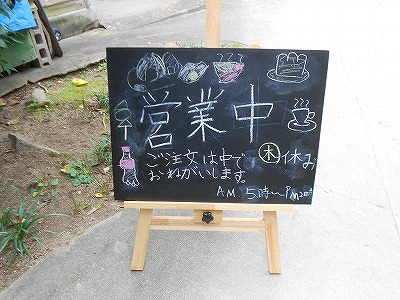 営業中
ご注文は中で ㊍休み
おねがいします。
AM 5時〜PM2時